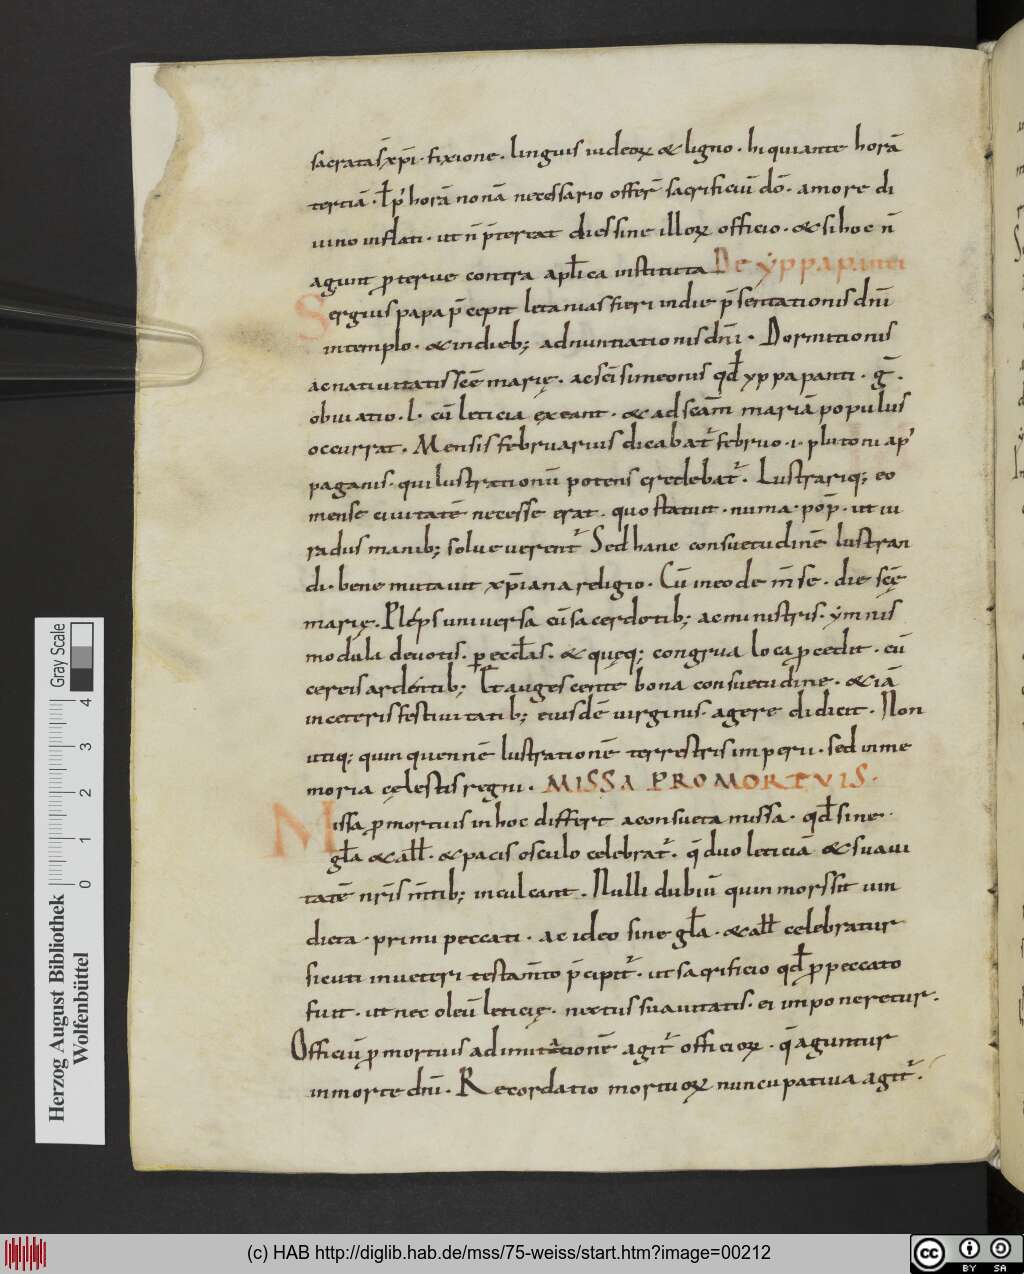 sacratas x̄pi · fixione · linguis iudeoꝝ & ligno · hi qui ante horā
tertiā · ł p' horā nonā necessario offer̄ sacrificiū dō · amore di
uino inflati · ut n̄ p̄tereat dies sine illoꝝ officio · & si hoc n̄
agunt p̱terue contra apłica instituta De ypapanti
Sergius papa p̄cepit letanias fieri in die p̄sentationis dn̄i
in templo · & in dieb; adnuntiationis dn̄i · Dormitionis
ac natiuitatis scē marię · ac sc̄i simeonis qđ yppapanti · ḡ ·
obuiatio · l · cū leticia exeant · & ad sc̄am mariā populus
occurrat · Mensis februarius dicabat' februo · i · plutoni ap'
paganis · qui lustrationū potens credebat' · Lustrariq; eo
mense ciuitatē necesse erat · quo statuit · numa · pop̄ · ut iu
ra dus manib; soluerent' Sed hanc consuetudinē lustran
di · bene mutauit xp̄iana religio · Cū in eo de m̄se · die scę
marię · Plebs uniuersa cū sacerdotib; ac ministris · ymnis
modula deuotis · ꝑ eccłas · & quęq; congrua loca p̱cedit · cū
cereis ardentib; Et augescente bona consuetudine · & iā
in ceteris festiuitatib; eiusdē uirginis · agere didicit · Non
utiq; quinquennē lustrationē terrestris imperii · sed in me
moria cęlestis regni · MISSA PRO MORTVIS ·
Missa p̱ mortuis in hoc differt a consueta missa · qđ sine ·
gła & ałł · & pacis osculo celebrat' · q̄ duo leticiā & suaui
tatē nr̄is m̄tib; inculcant · Nulli dubiū quin mors sit uin
dicta · primi peccati · ac ideo sine gła · & ałł celebratur
sicuti in ueteri testam̄to p̄cipit' · ut sacrificio qđ p̱ peccato
fuit · ut nec oleū leticię · nec tus suauitatis · ei imponeretur ·
Officiū p̱ mortuis ad imitationē agit' officioꝝ · q̄ aguntur
in morte dn̄i · Recordatio mortuoꝝ nuncupatiua agit' ·
Herzog August Bibliothek
Wolfenbüttel
0 1 2 3 4
Gray Scale
(c) HAB http://diglib.hab.de/mss/75-weiss/start.htm?image=00212
cc BY SA